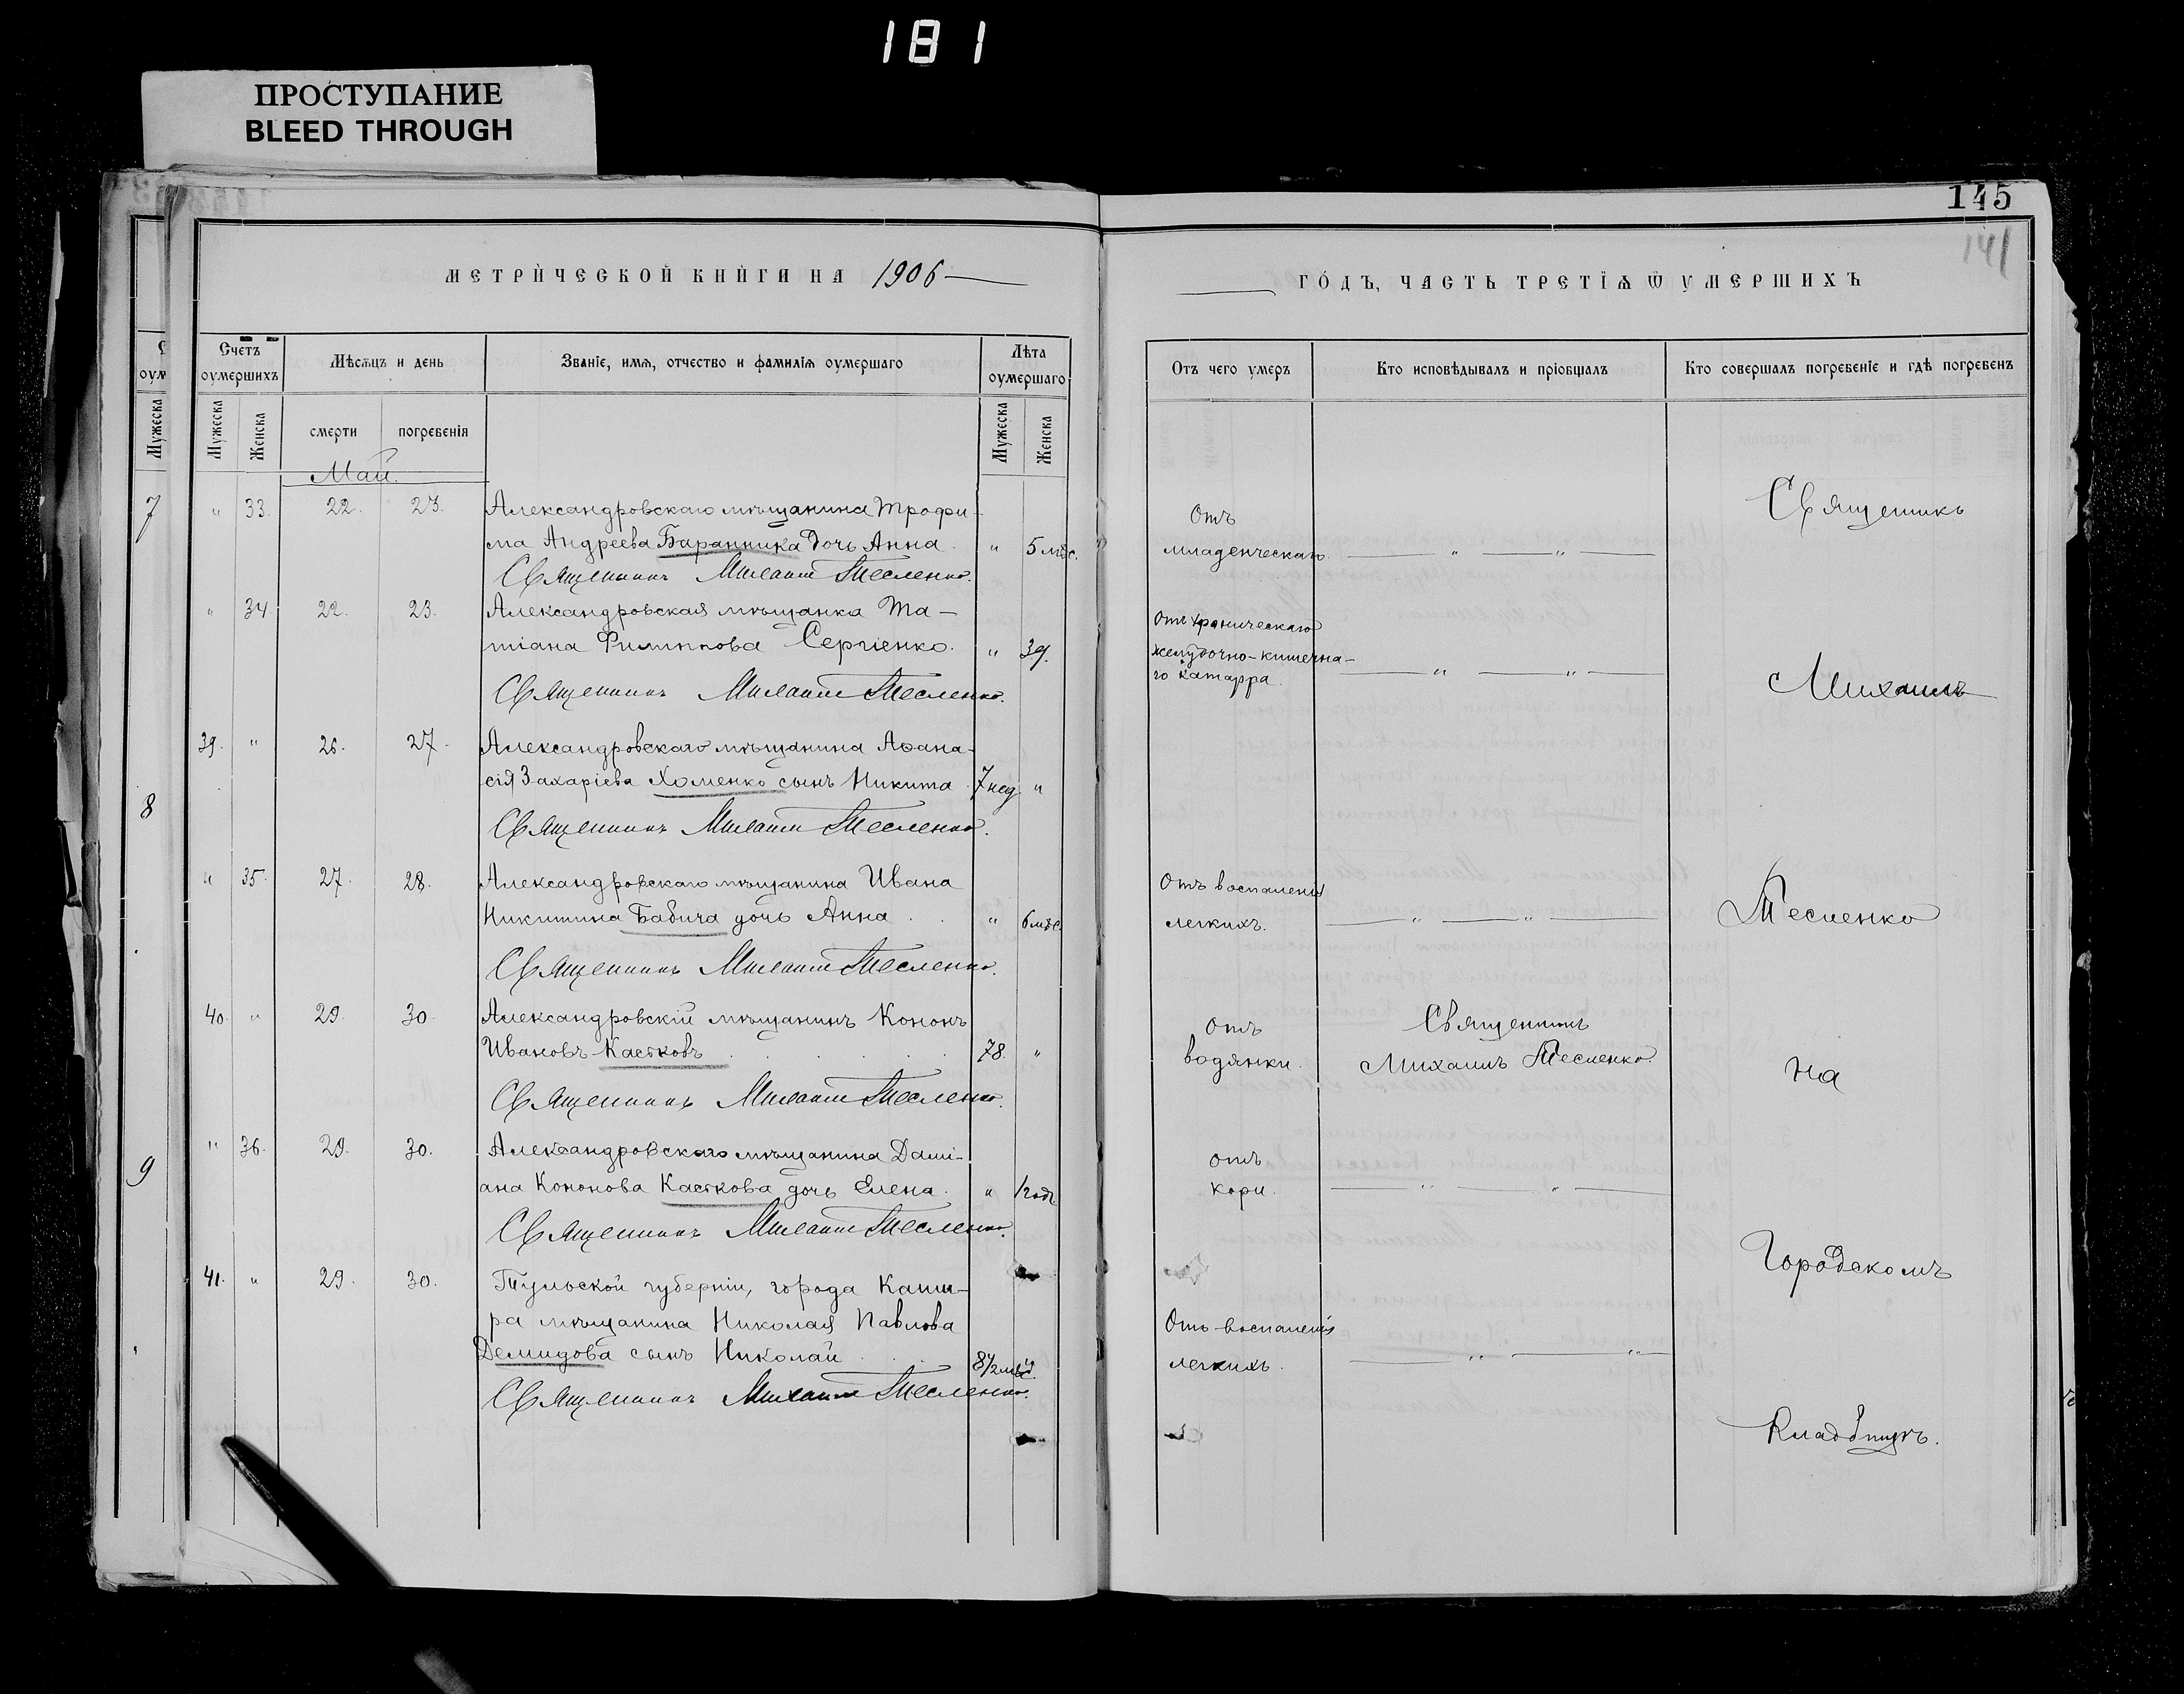 181
ПРОСТУПАНИЕ
BLEED THROUGH
145
141
МЕТРИЧЕСКОЙ КНИГИ НА 1906
ГОДЪ, ЧАСТЬ ТРЕТІЯ Ѡ УМЕРШИХЪ
Счетъ оумершихъ
Мѣсяцъ и день
Званіе, имя, отчество и фамилія оумершаго
Лѣта оумершаго
Отъ чего умеръ
Кто исповѣдывалъ и пріобщалъ
Кто совершалъ погребеніе и гдѣ погребенъ
Мужеска
Мужеска
Женска
смерти
погребенія
Мужеска
Женска
Май.
7
" 33. 22. 23. Александровскаго мѣщанина Трофи-
ма Андреева Баранника дочь Анна. " 5 мѣс.
Священникъ Михаилъ Тесленко.
Отъ
младенческаго. " "
Священникъ
" 34. 22. 23. Александровская мѣщанка Та-
тіана Филиппова Сергіенко. " 39.
Священникъ Михаилъ Тесленко.
Отъ хроническаго
желудочно-кишечна-
го катарра. " "
Михаилъ
39. " 26. 27. Александровскаго мѣщанина Аѳана-
сія Захаріева Хоменко сынъ Никита 7 нед. "
Священникъ Михаилъ Тесленко.
8
" 35. 27. 28. Александровскаго мѣщанина Ивана
Никитина Бабича дочь Анна . . " 6 мѣс.
Священникъ Михаилъ Тесленко.
Отъ воспаленія
легкихъ. " "
Тесленко
40. " 29. 30. Александровскій мѣщанинъ Кононъ
Ивановъ Кастковъ 78. "
Священникъ Михаилъ Тесленко.
Отъ
водянки.
Священникъ
Михаилъ Тесленко.
на
9
" 36. 29. 30. Александровскаго мѣщанина Дамі-
ана Кононова Касткова дочь Елена. " 1 годъ
Священникъ Михаилъ Тесленко.
отъ
кори. " "
Городскомъ
41. " 29. 30. Тульской губерніи, города Каши-
ра мѣщанина Николая Павлова
Демидова сынъ Николай . . . 8 1/2 мѣс. "
Священникъ Михаилъ Тесленко.
Отъ воспаленія
легкихъ. " "
Кладбищѣ.